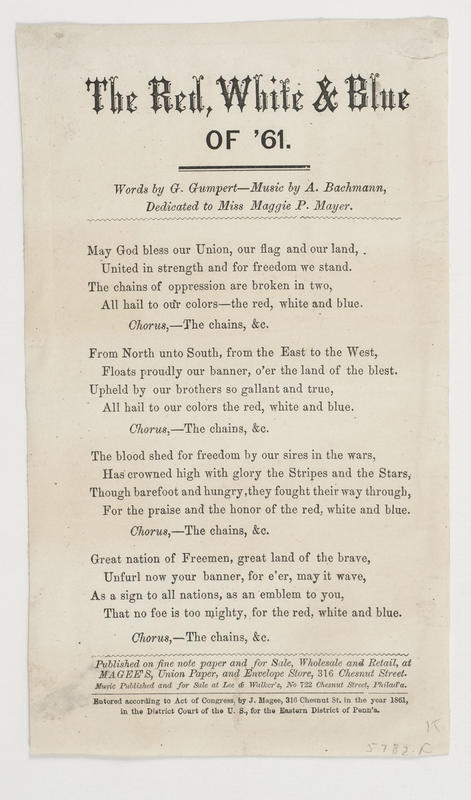 The Red, White & Blue
OF '61.
Words by G. Gumpert—Music by A. Bachmann,
Dedicated to Miss Maggie P. Mayer.
May God bless our Union, our flag and our land,
United in strength and for freedom we stand.
The chains of oppression are broken in two,
All hail to our colors—the red, white and blue.
Chorus,—The chains, &c.
From North unto South, from the East to the West,
Floats proudly our banner, o'er the land of the blest.
Upheld by our brothers so gallant and true,
All hail to our colors the red, white and blue.
Chorus,—The chains, &c.
The blood shed for freedom by our sires in the wars,
Has crowned high with glory the Stripes and the Stars,
Though barefoot and hungry, they fought their way through,
For the praise and the honor of the red, white and blue.
Chorus,—The chains, &c.
Great nation of Freemen, great land of the brave,
Unfurl now your banner, for e'er, may it wave,
As a sign to all nations, as an emblem to you,
That no foe is too mighty, for the red, white and blue.
Chorus,—The chains, &c.
Published on fine note paper and for Sale, Wholesale and Retail, at
MAGEE'S, Union Paper, and Envelope Store, 316 Chesnut Street.
Music Published and for Sale at Lee & Walker's, No 722 Chesnut Street, Philad'a.
Entered according to Act of Congress, by J. Magee, 316 Chesnut St. in the year 1861,
in the District Court of the U. S., for the Eastern District of Penn'a.